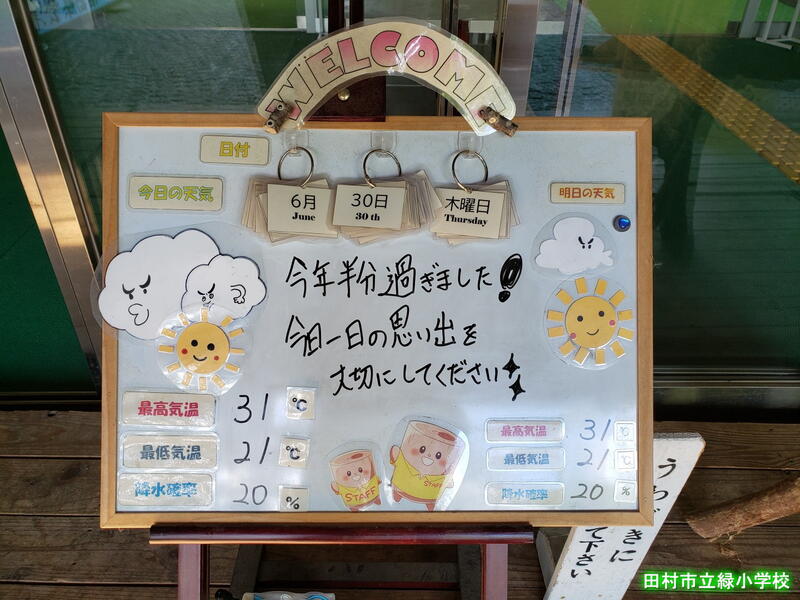 WELCOME
日付
今日の天気
明日の天気
6月
June
30日
30 th
木曜日
Thursday
今年半分過ぎました!
今日一日の思い出を
大切にしてください
最高気温 31 ℃
最低気温 21 ℃
降水確率 20 %
STAFF
STAFF
最高気温 31 ℃
最低気温 21 ℃
降水確率 20 %
て下さい
田村市立緑小学校